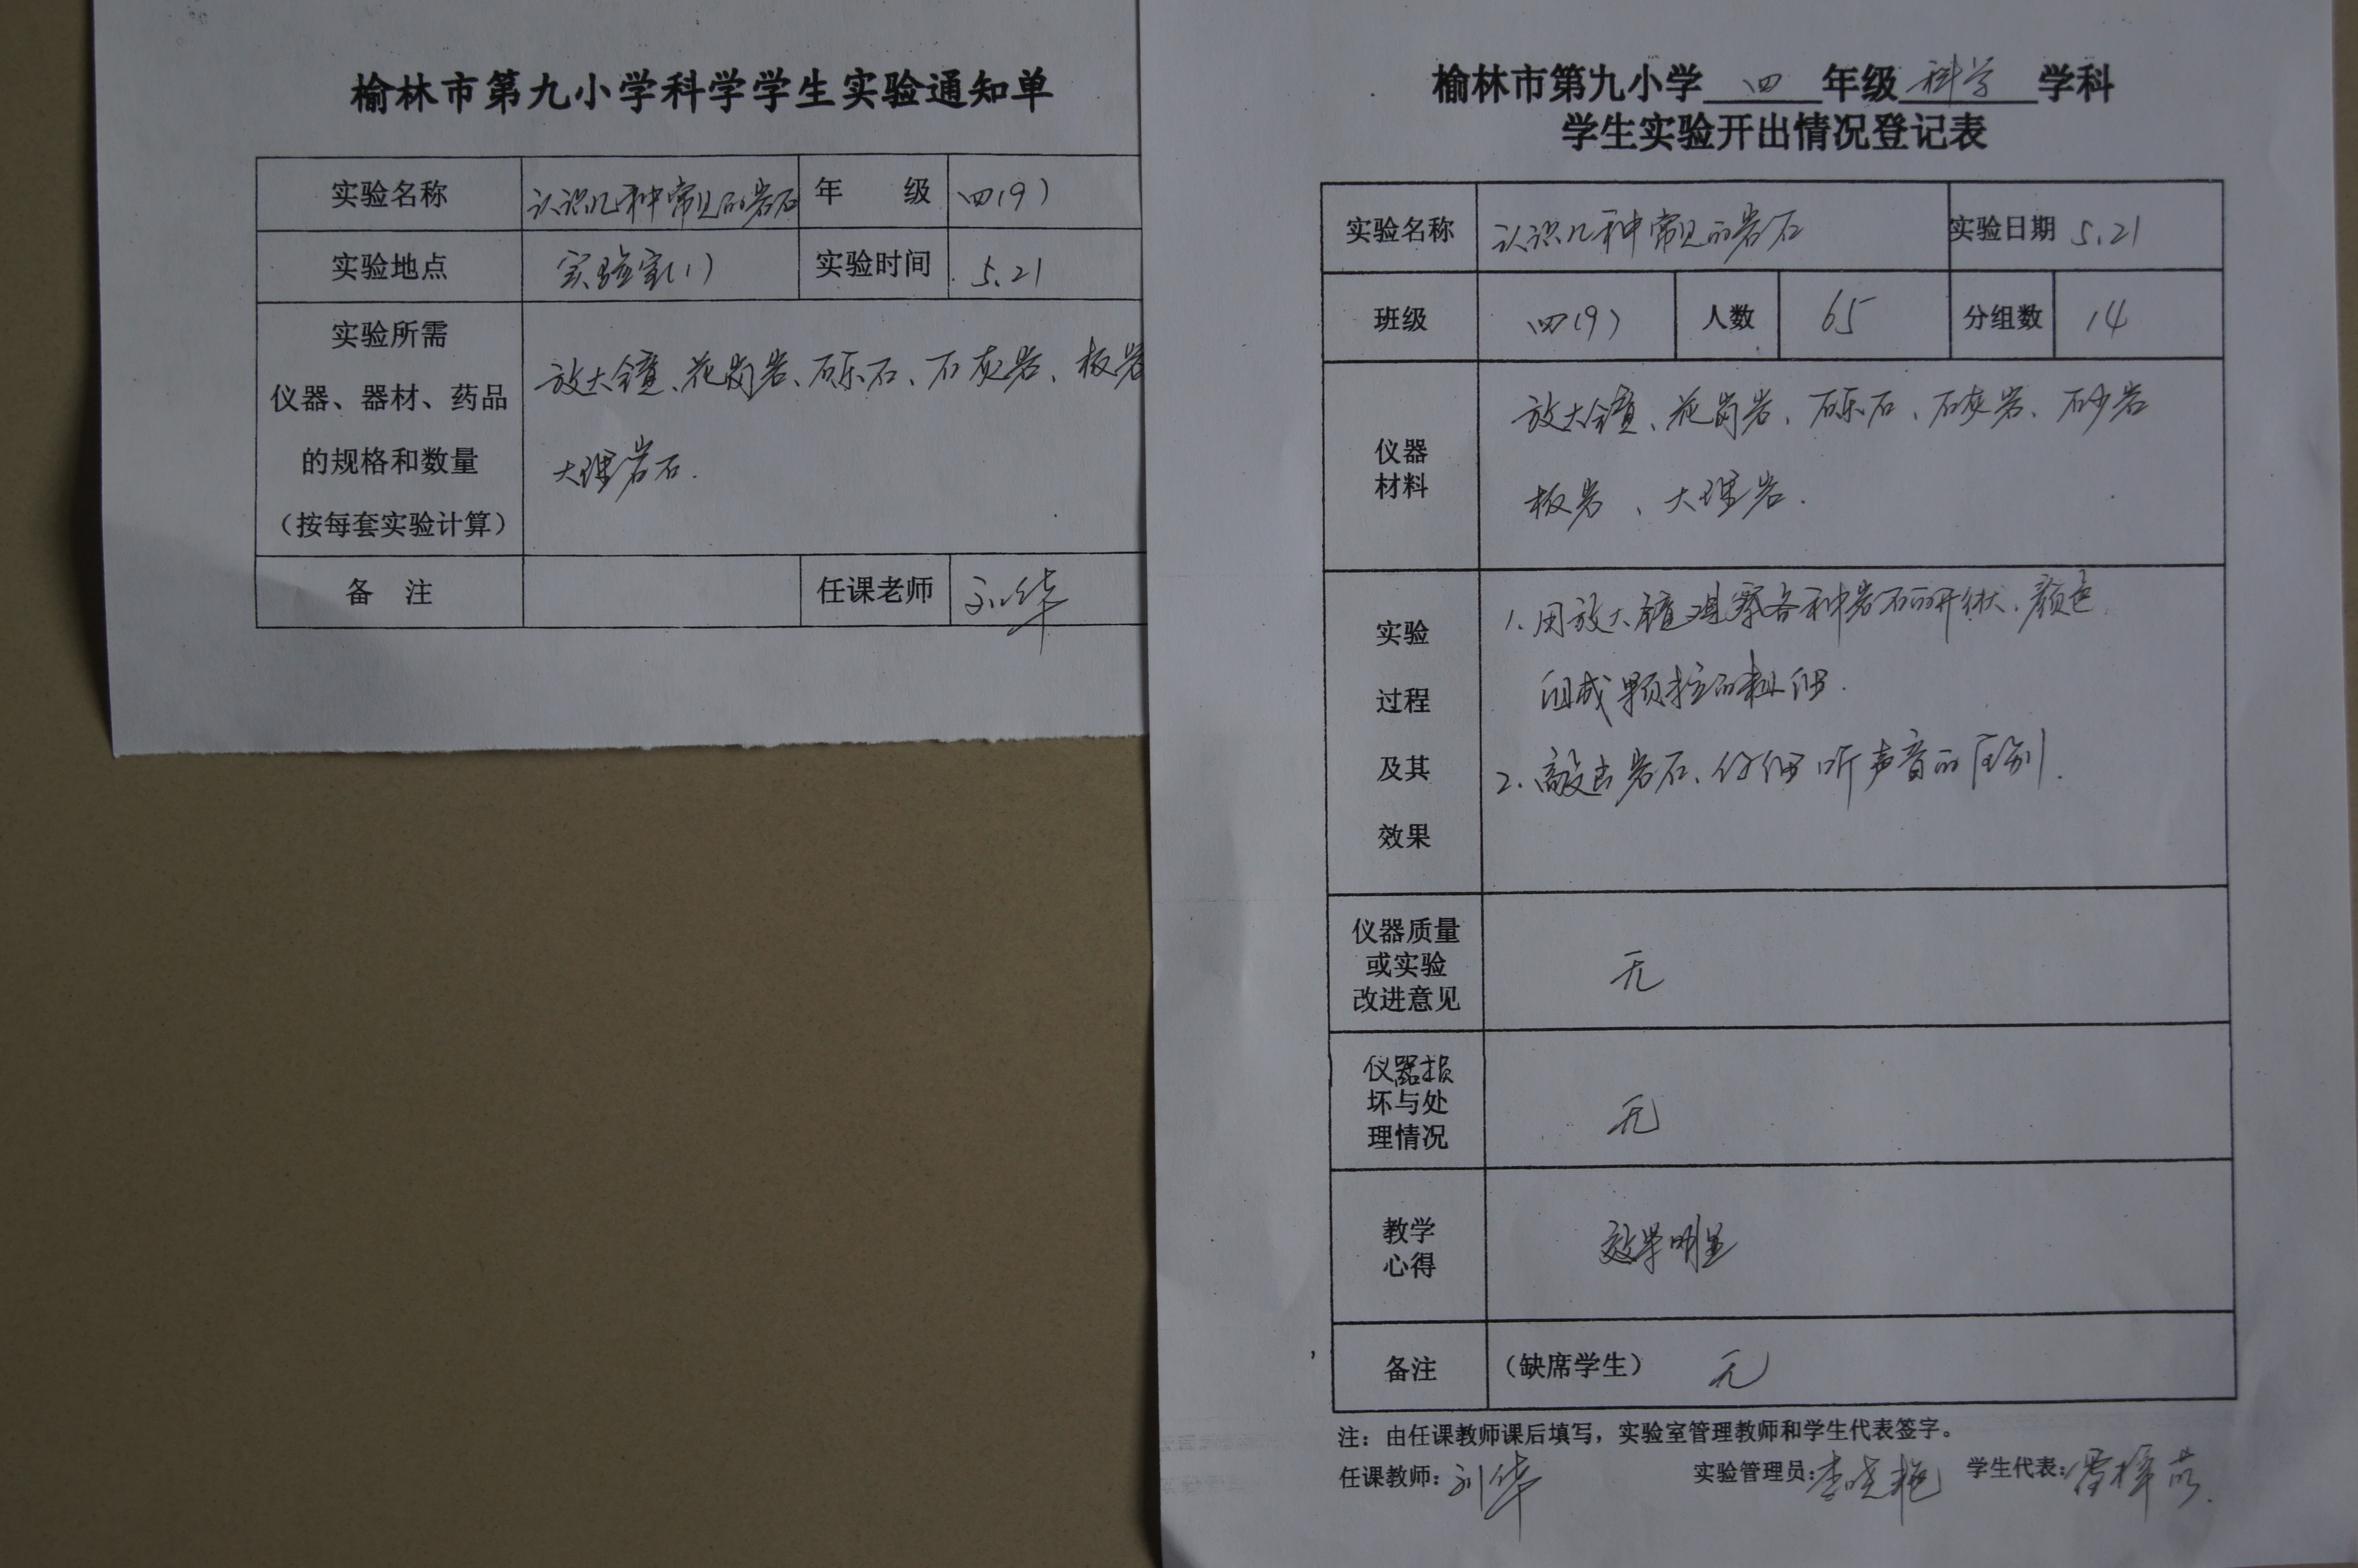 榆林市第九小学科学学生实验通知单
实验名称 认识几种常见的岩石 年 级 四(9)
实验地点 实验室(1) 实验时间 5.21
实验所需
仪器、器材、药品
的规格和数量
(按每套实验计算)
放大镜、花岗岩、砾石、石灰岩、板岩
大理岩石.
备 注 任课老师 刘华
榆林市第九小学 四 年级 科学 学科
学生实验开出情况登记表
实验名称 认识几种常见的岩石 实验日期 5.21
班级 四(9) 人数 65 分组数 14
仪器
材料
放大镜、花岗岩、砾石、石灰岩、砂岩
板岩、大理岩.
实验
过程
及其
效果
1.用放大镜观察各种岩石的形状、颜色
组成颗粒的粗细.
2.敲击岩石、仔细听声音的区别.
仪器质量
或实验
改进意见
无
仪器损
坏与处
理情况
无
教学
心得
效果明显
备注 (缺席学生) 无
注:由任课教师课后填写,实验室管理教师和学生代表签字。
任课教师:刘华 实验管理员:李晓艳 学生代表: